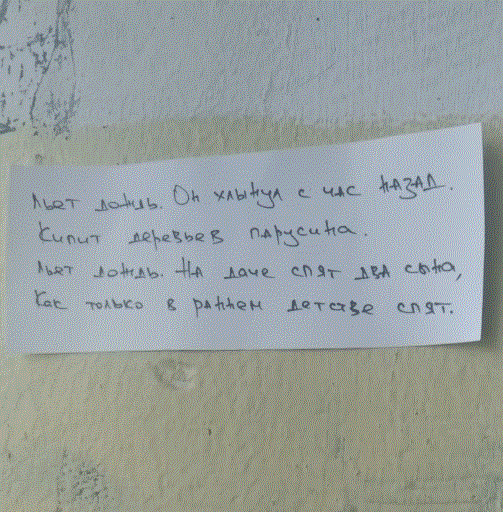 Льет дождь. Он хлынул с час назад.
Кипит деревьев парусина.
Льет дождь. На даче спят два сына,
Как только в раннем детстве спят.